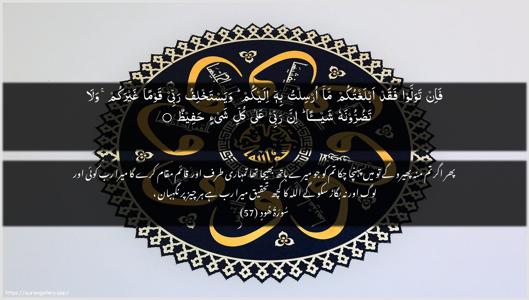 فَاِنْ تَوَلَّوْا فَقَدْ اَبْلَغْتُكُمْ مَّاۤ اُرْسِلْتُ بِهٖۤ اِلَيْكُمْ ؕ وَيَسْتَخْلِفُ رَبِّىْ قَوْمًا غَيْرَكُمْ ۚ وَلَا
تَضُرُّوْنَهٗ شَيْـــًٔا ؕ اِنَّ رَبِّىْ عَلٰى كُلِّ شَىْءٍ حَفِيْظٌ ۝
پھر اگر تم منہ پھیرو گے تو میں پہنچا چکا تم کو جو میرے ہاتھ بھیجا تھا تمہاری طرف اور قائم مقام کرے گا میرا رب کوئی اور
لوگ اور نہ بگاڑ سکو گے اللہ کا کچھ تحقیق میرا رب ہے ہر چیز پر نگہبان ،
سُورَةُ هُود (57)